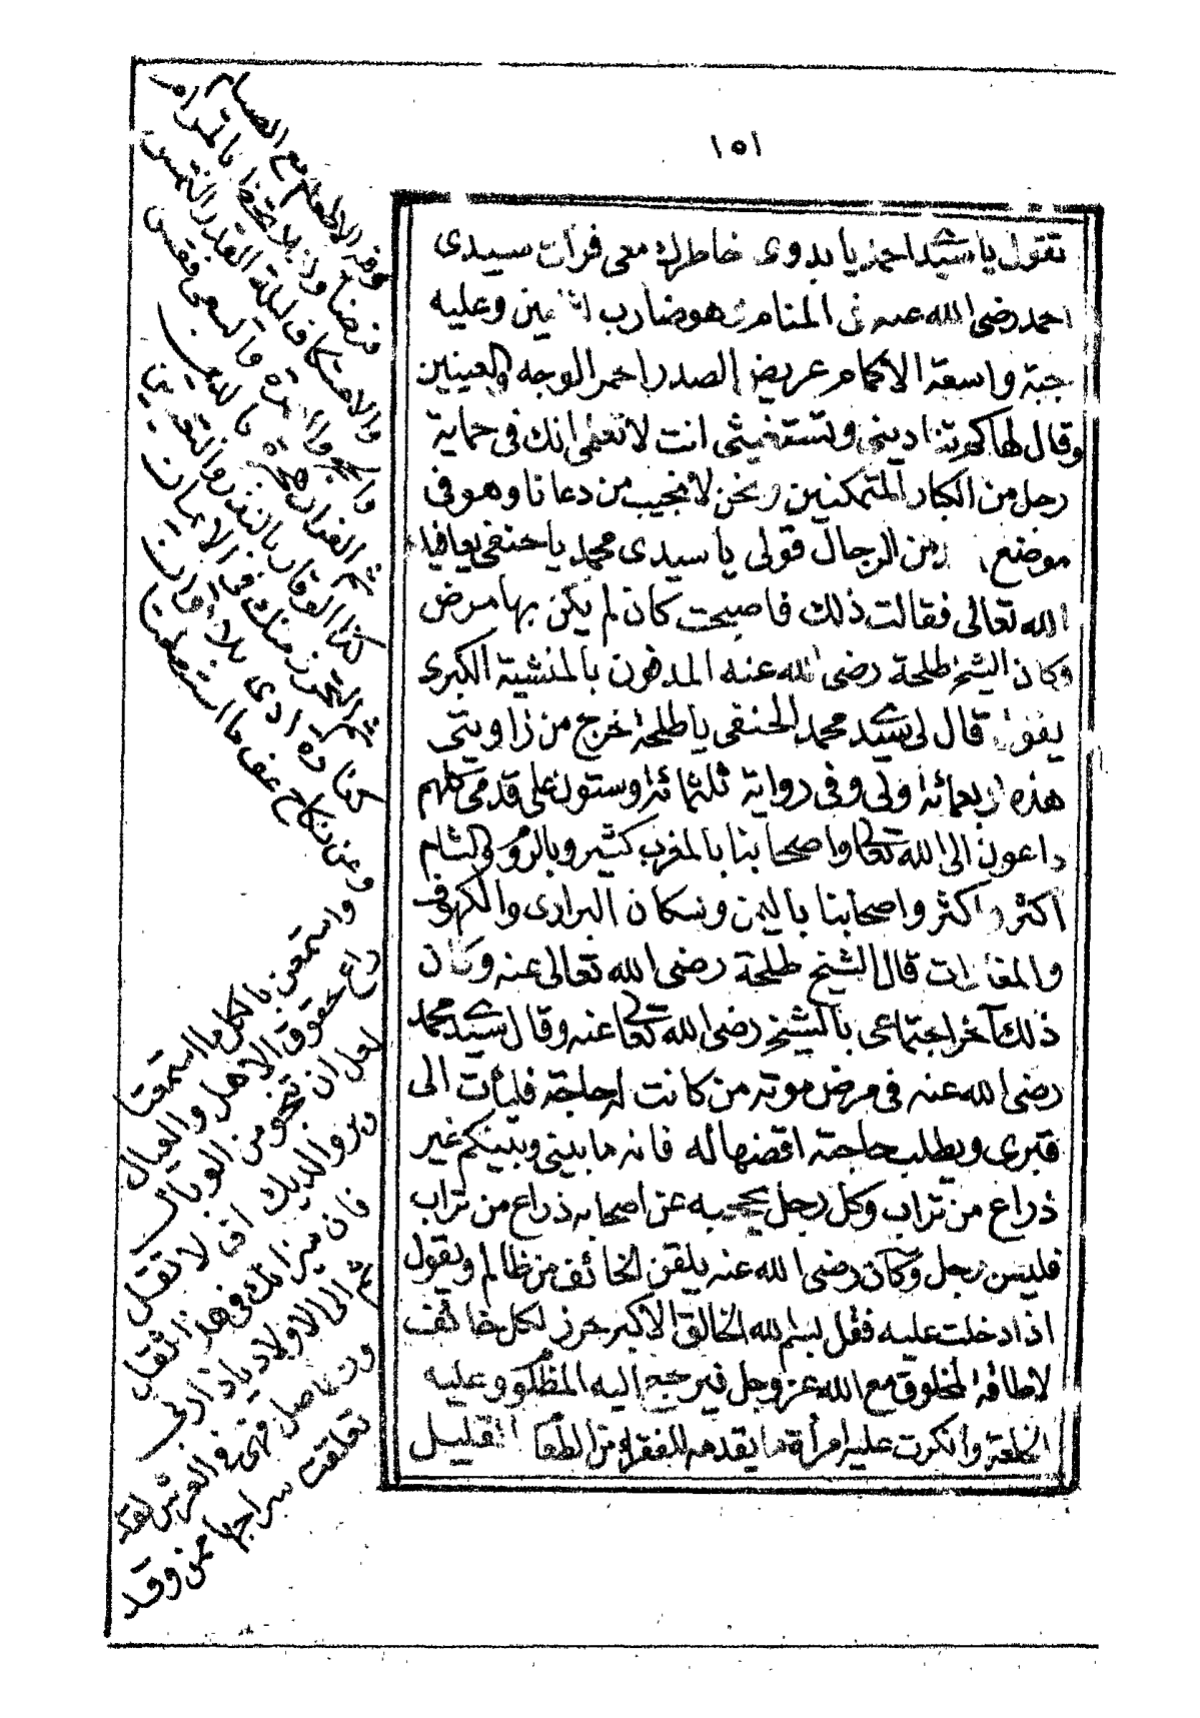 ١٥١
تقول يا سيد احمد يا بدوى خاطرك معى فرأت سيدى
احمد رضى الله عنه فى المنام وهو ضارب لثامين وعليه
جبة واسعة الاكمام عريض الصدر احمر الوجه والعينين
وقال لها كم تنادينى وتستغيثى انت لا تعلمى انك فى حماية
رجل من الكبار المتمكنين ونحن لا نجيب من دعانا وهو فى
موضع من الرجال قولى يا سيدى محمد يا حنفى يعافيك
الله تعالى فقالت ذلك فاصبحت كان لم يكن بها مرض
وكان الشيخ طلحة رضى الله عنه المدفون بالمنشية الكبرى
يقول قال لى سيد محمد الحنفى يا طلحة خرج من زاويتى
هذه اربعمائة ولى وفى رواية ثلثمائة وستون على قدمى كلهم
داعون الى الله تعالى واصحابنا بالمغرب كثير وبالروم والشام
اكثر واكثر واصحابنا باليمن وسكان البرارى والكهوف
والمغارات قال الشيخ طلحة رضى الله تعالى عنه وكان
ذلك آخر اجتماعى بالشيخ رضى الله تعالى عنه وقال سيد محمد
رضى الله عنه فى مرض موته من كانت له حاجة فليأت الى
قبرى ويطلب حاجته اقضيها له فانه ما بينى وبينكم غير
ذراع من تراب وكل رجل يحجبه عن اصحابه ذراع من تراب
فليس برجل وكان رضى الله عنه يلقن الخائف من ظالم ويقول
اذا دخلت عليه فقل بسم الله الخالق الاكبر حرز لكل خائف
لا طاقة لمخلوق مع الله عز وجل فيرجع اليه المظلوم وعليه
الخلعة وانكرت عليه امرأة ما يقدمه للفقراء من الطعام القليل
وفه الاطعام مع الصيام
والاعتكاف ليلة القدر التمس
ثم الفرار هجرة بالدين
كذا الوقار بالنذر واليقين
ثم التحرز منك فى الايمان
كفارة ادى بلا توان
وعن نكاح عف ما استطعت
واستعن بالكل ما استمعت
راع حقوق الاهل والعيال
لعل ان تنجو من الوبال
وبر والديك اف لا تقل
فان ميزانك فى هذا ثقل
ثم الى الاولاد
تعلقت سراجها ممن وقد